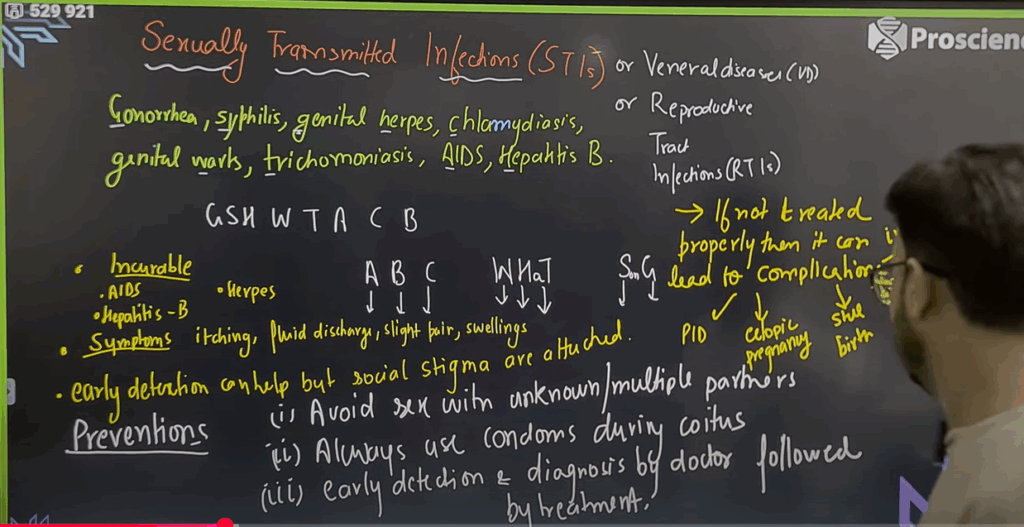 529 921
Proscienc
Sexually Transmitted Infections (STIs)
or Veneral diseases (VD)
or Reproductive
Tract
Infections (RTIs)
Gonorrhea, syphilis, genital herpes, chlamydiasis,
genital warts, trichomoniasis, AIDS, Hepatitis B.
GSH W T A C B
→ If not treated
properly then it can
lead to complication
PID
ectopic
pregnancy
still
birth
• Incurable
• AIDS
• Herpes
• Hepatitis - B
A B C WHaT SmG
• Symptoms itching, fluid discharge, slight pain, swellings
• early detection can help but social stigma are attached.
Preventions
(i) Avoid sex with unknown/multiple partners
(ii) Always use condoms during coitus
(iii) early detection & diagnosis by doctor followed
by treatment.